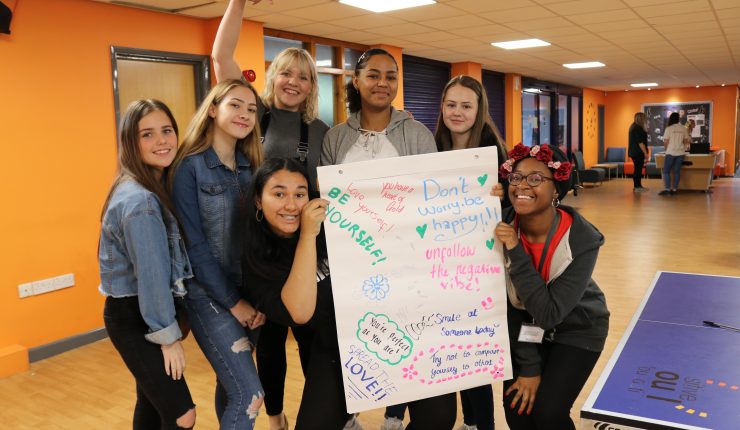 Love
yourself!
you have a
heart of
Gold
BE
YOURSELF!
Don't
worry, be
happy!!!
unfollow
the negative
vibe!
Smile at
someone today
You're Perfect
as You are!
Try not to compare
yourself to others
SPREAD THE
LOVE!!